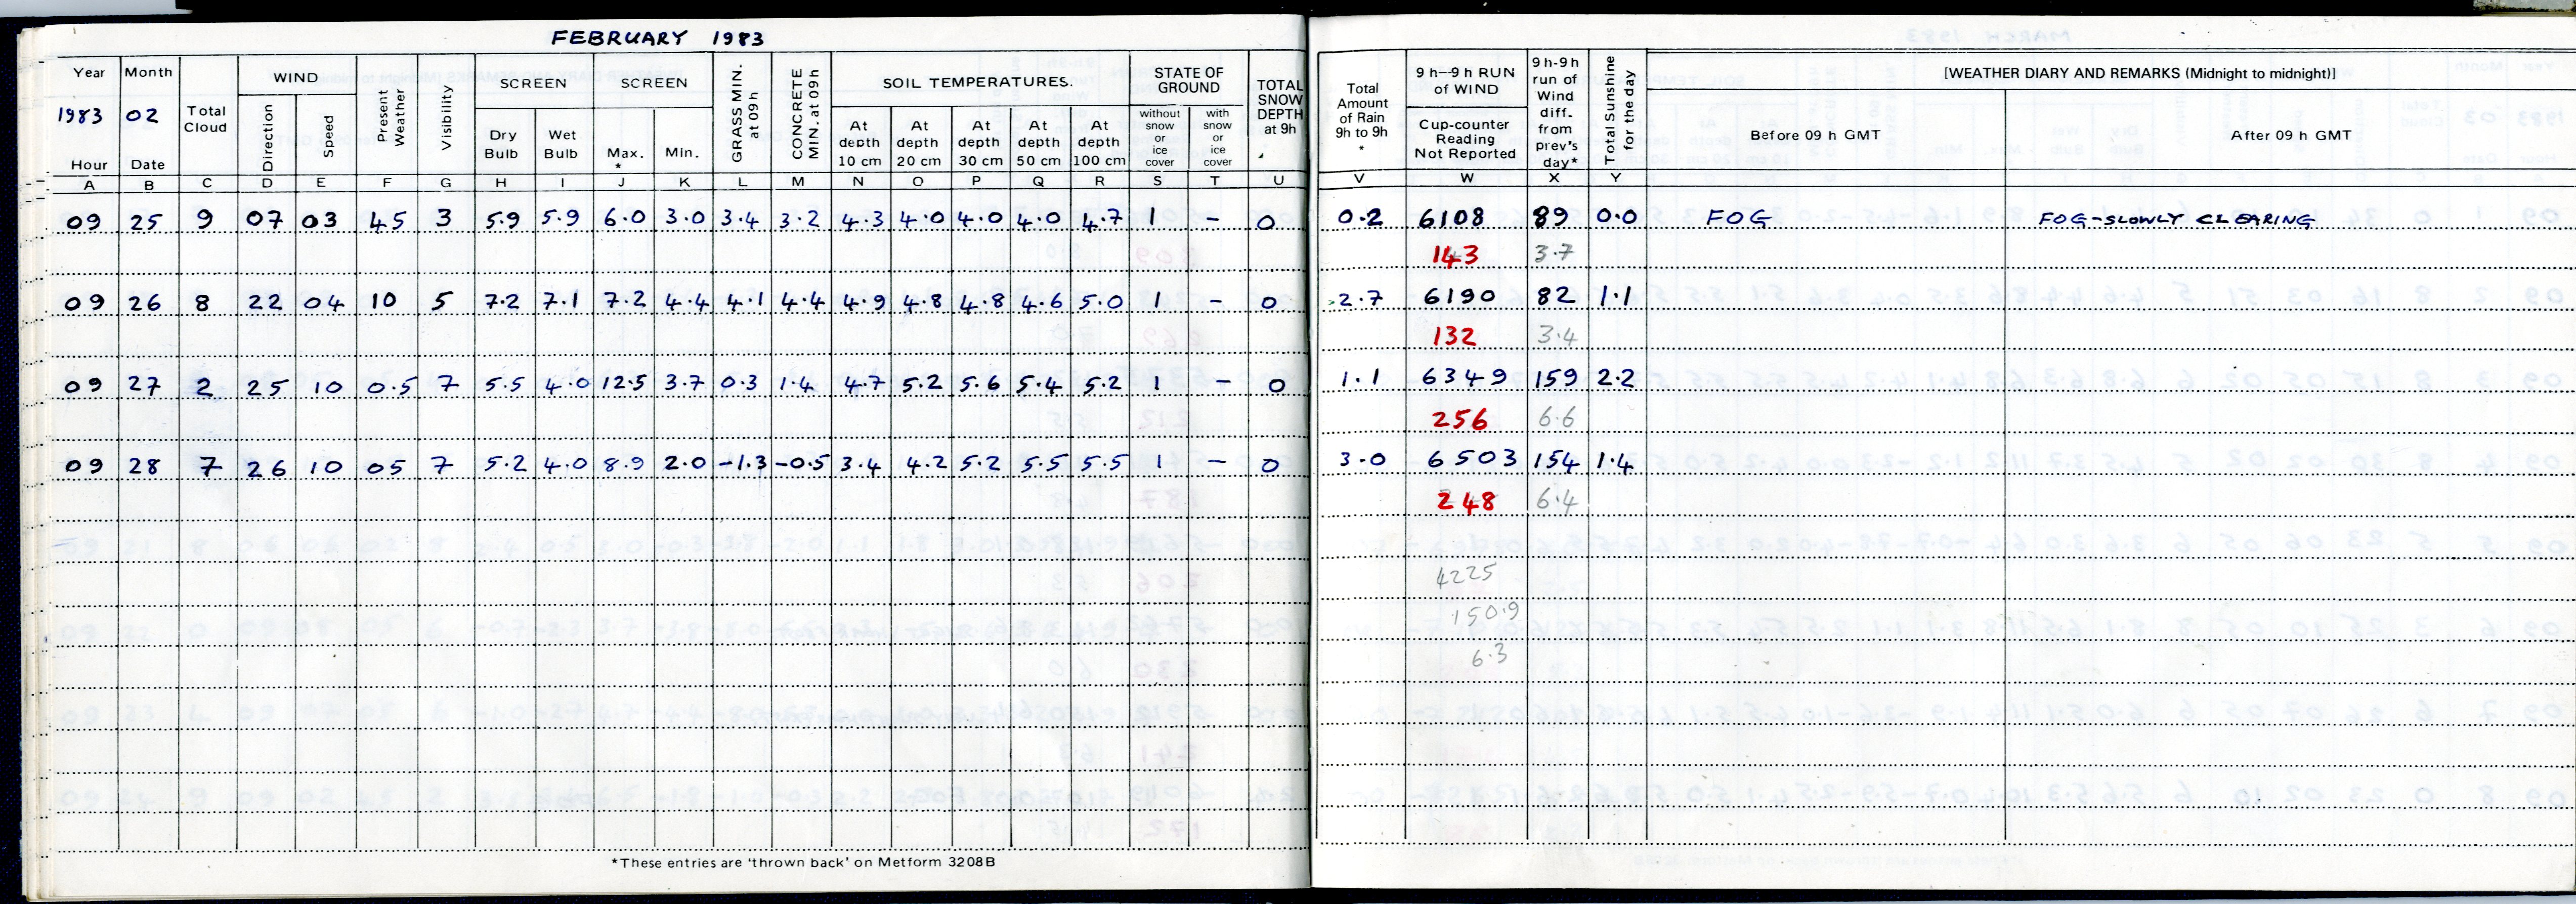 FEBRUARY 1983
Year Month WIND SCREEN SCREEN SOIL TEMPERATURES. STATE OF GROUND TOTAL SNOW DEPTH at 9h
1983 02 Total Cloud Direction Speed Present Weather Visibility Dry Bulb Wet Bulb Max. * Min. GRASS MIN. at 09 h CONCRETE MIN. at 09h At depth 10 cm At depth 20 cm At depth 30 cm At depth 50 cm At depth 100 cm without snow or ice cover with snow or ice cover
Hour Date
Total Amount of Rain 9h to 9h * 9 h-9 h RUN of WIND Cup-counter Reading Not Reported 9 h-9 h run of Wind diff. from prev's day* Total Sunshine for the day [WEATHER DIARY AND REMARKS (Midnight to midnight)]
Before 09 h GMT After 09 h GMT
A B C D E F G H I J K L M N O P Q R S T U V W X Y
09 25 9 07 03 45 3 5.9 5.9 6.0 3.0 3.4 3.2 4.3 4.0 4.0 4.0 4.7 1 - 0 0.2 6108 89 0.0 FOG FOG-SLOWLY CLEARING
143 3.7
09 26 8 22 04 10 5 7.2 7.1 7.2 4.4 4.1 4.4 4.9 4.8 4.8 4.6 5.0 1 - 0 2.7 6190 82 1.1
132 3.4
09 27 2 25 10 0.5 7 5.5 4.0 12.5 3.7 0.3 1.4 4.7 5.2 5.6 5.4 5.2 1 - 0 1.1 6349 159 2.2
256 6.6
09 28 7 26 10 05 7 5.2 4.0 8.9 2.0 -1.3 -0.5 3.4 4.2 5.2 5.5 5.5 1 - 0 3.0 6503 154 1.4
248 6.4
4225
150.9
6.3
*These entries are 'thrown back' on Metform 3208B